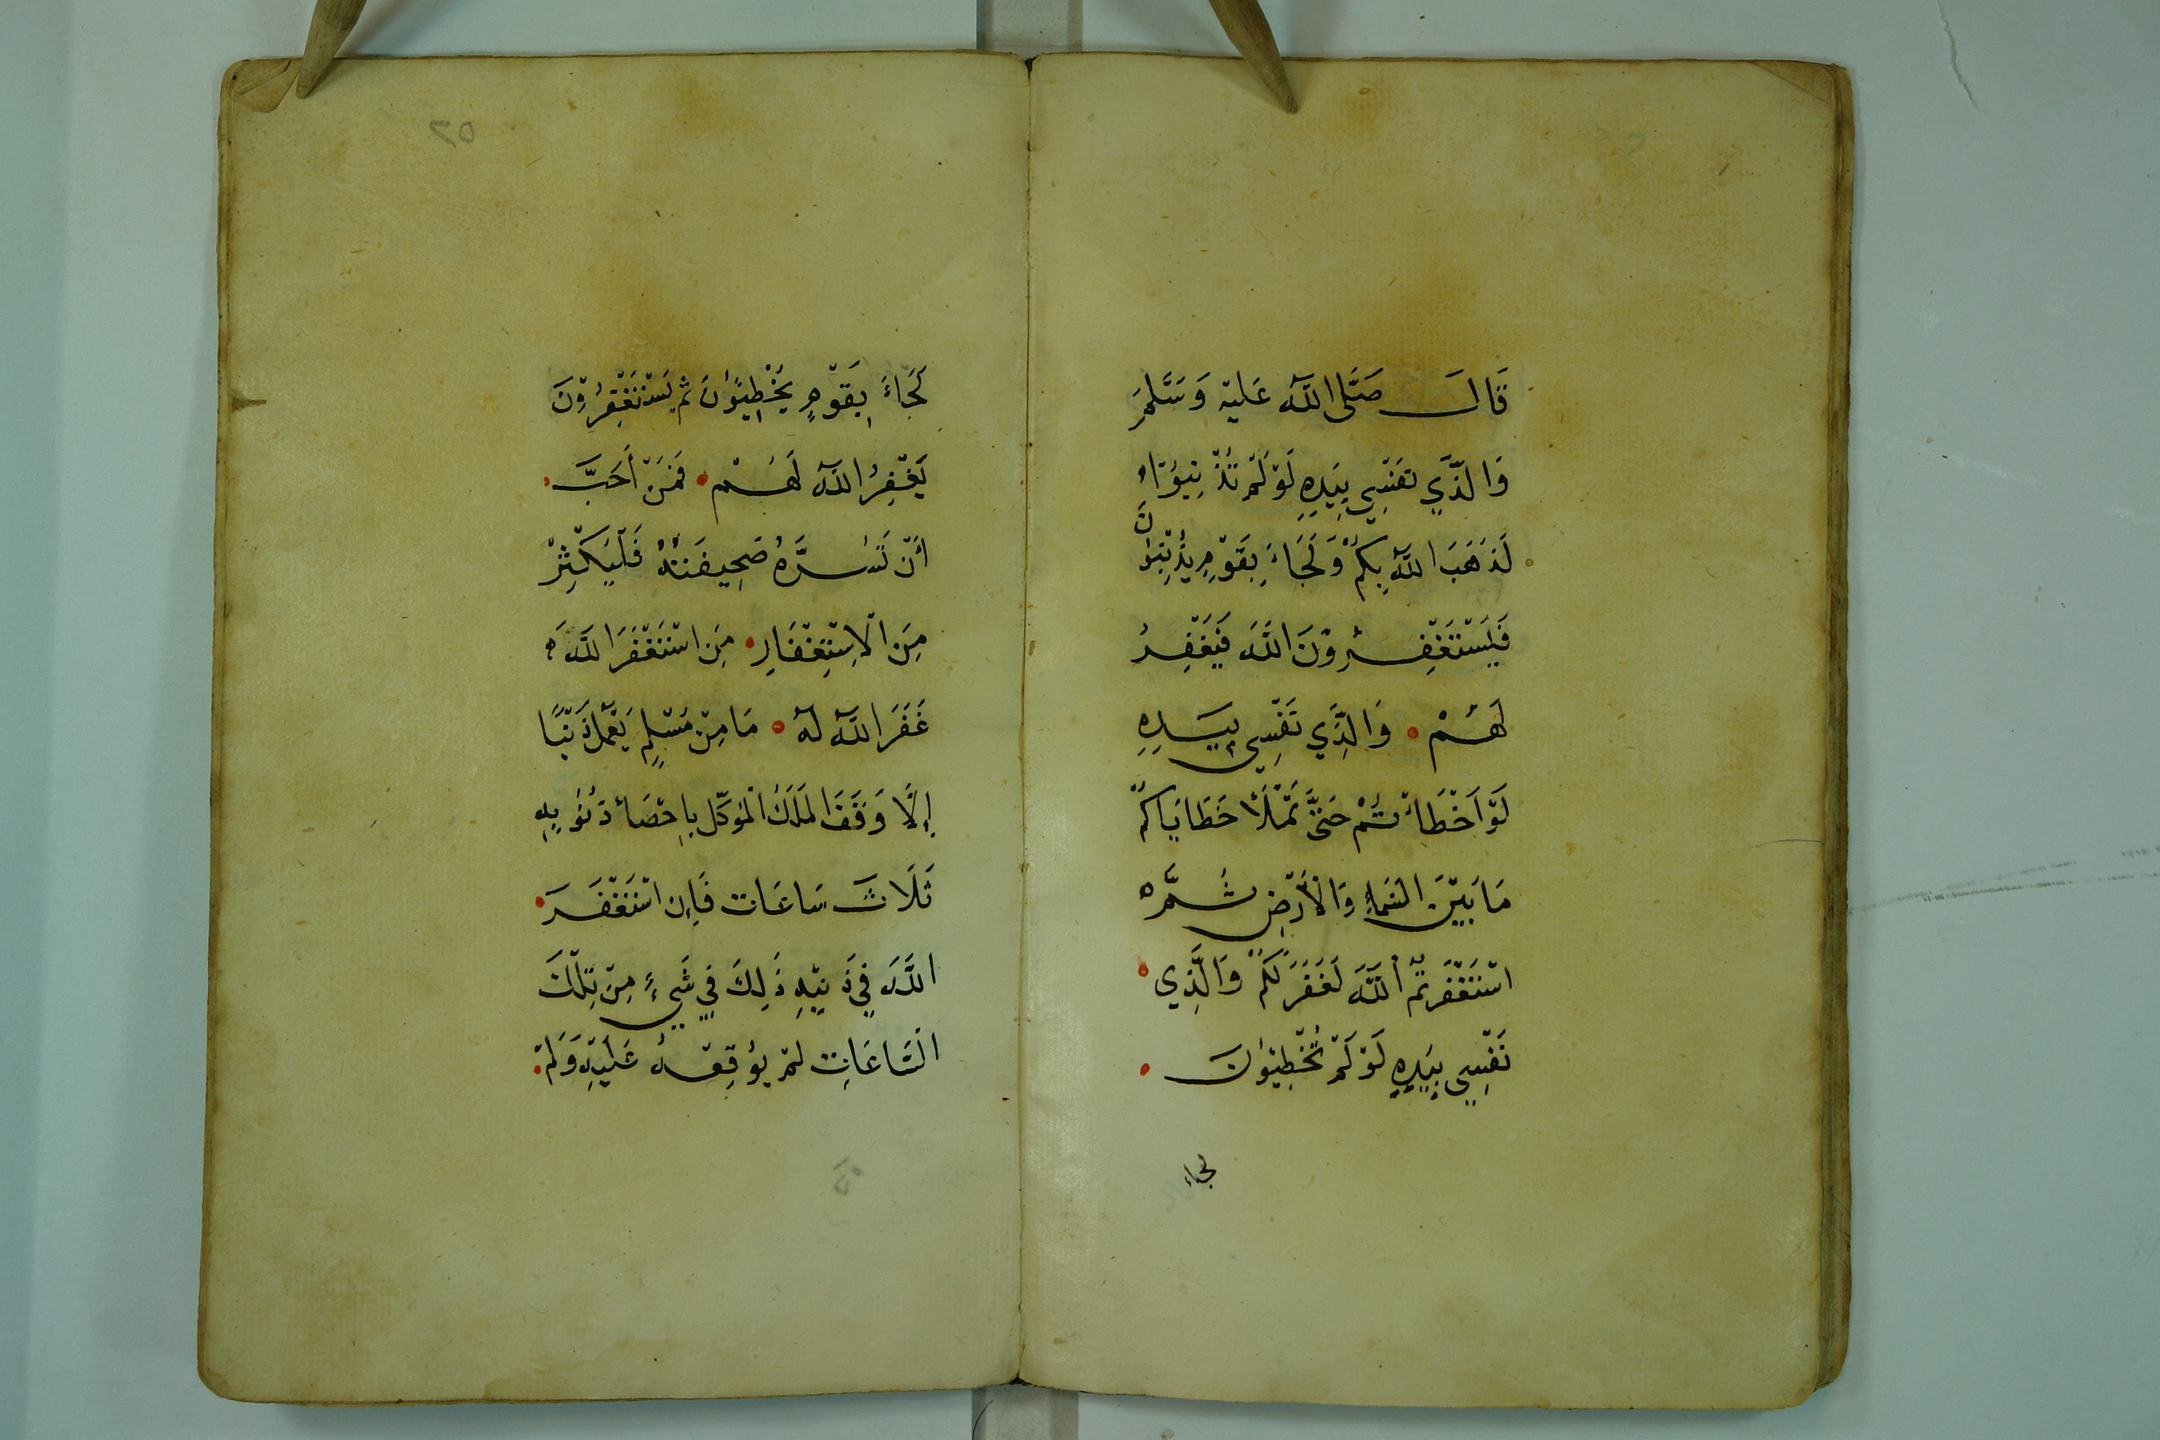 قَالَ صَلَّى اللَّه عَلَيْه وَسَلَّمَ
وَالَّذِي نَفْسِي بِيَدِهِ لَوْ لَمْ تُذْنِبُوا
لَذَهَبَ اللَّهُ بِكُمْ وَلَجَاءَ بِقَوْمٍ يُذْنِبُونَ
فَيَسْتَغْفِرُونَ اللَّهَ فَيَغْفِرُ
لَهُمْ • وَالَّذِي نَفْسِي بِيَدِهِ
لَوْ أَخْطَأْتُمْ حَتَّى تَمْلَأَ خَطَايَاكُمْ
مَا بَيْنَ السَّمَاءِ وَالْأَرْضِ ثُمَّ
اسْتَغْفَرْتُمْ اللَّهَ لَغَفَرَ لَكُمْ وَالَّذِي •
نَفْسِي بِيَدِهِ لَوْ لَمْ تُخْطِئُونَ •
لجاء
٥٦
لَجَاءَ بِقَوْمٍ يُخْطِيُونَ ثُمَّ يَسْتَغْفِرُونَ
يَغْفِرُ اللَّه لَهُمْ • فَمَنْ أَحَبَّ •
أَنْ تَسُرَّهُ صَحِيفَتُهُ فَلْيُكْثِرْ
مِنَ الْاِسْتِغْفَارِ • مَنِ اسْتَغْفَرَ اللَّهَ
غَفَرَ اللَّه لَه • مَا مِنْ مُسْلِمٍ يَعْمَلُ ذَنْبًا
إِلَّا وَقَفَ الْمَلَكُ الْمُوَكَّل بِإِحْصَاءِ ذُنُوبِهِ
ثَلَاثَ سَاعَات فَإِن اسْتَغْفَرَ •
اللَّهَ فِي ذَنْبِهِ ذَلِكَ فِي شَيْءٍ مِنْ تِلْكَ
السَّاعَاتِ لَمْ يُوقِفْهُ عَلَيْهِ وَلَمْ •